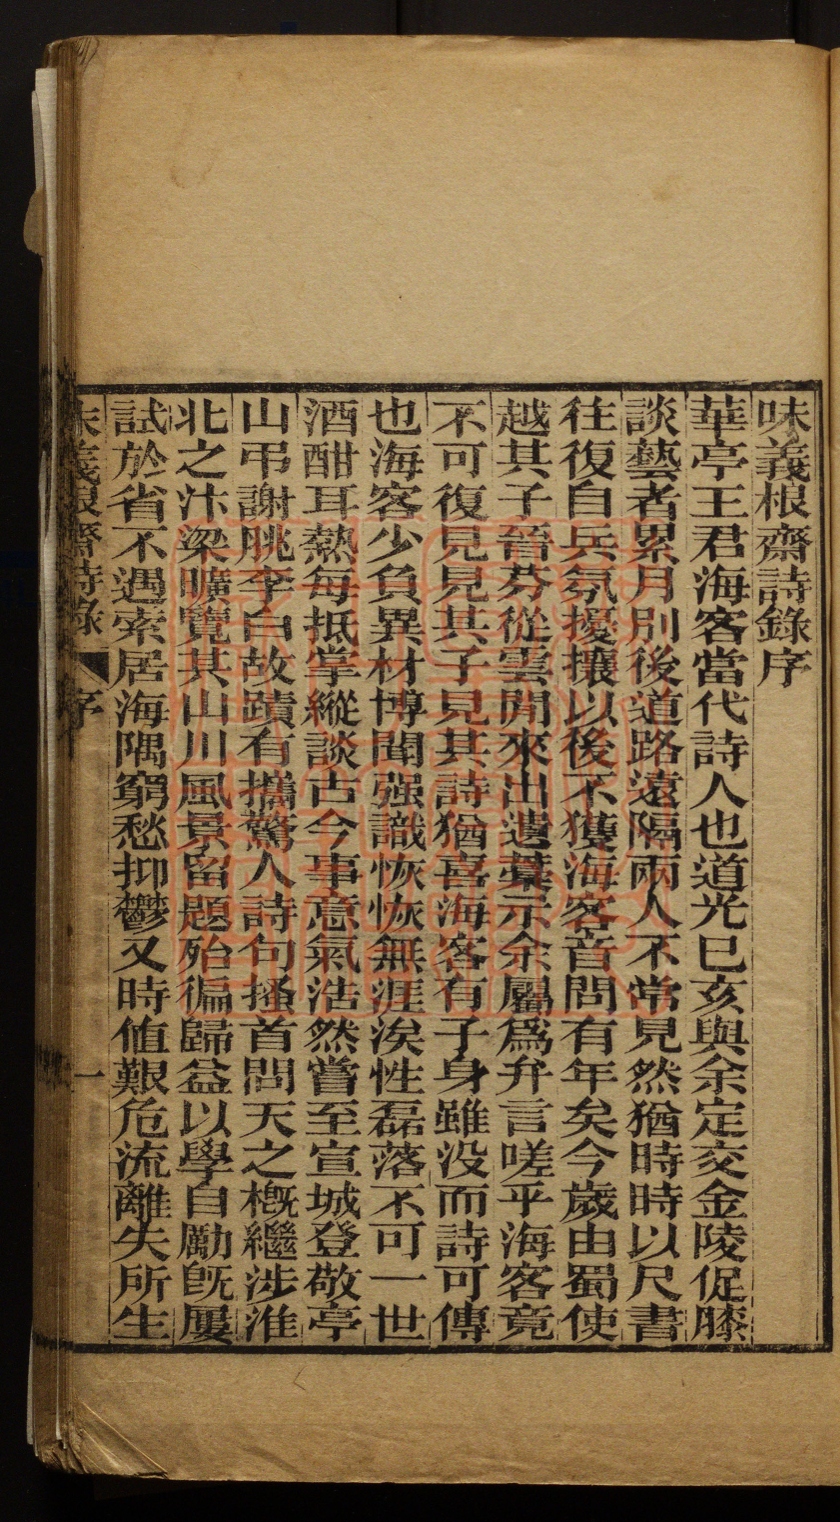 味義根齋詩錄序
華亭王君海客當代詩人也道光已亥與余定交金陵促膝
談藝者累月別後道路遠隔兩人不常見然猶時時以尺書
往復自兵氛擾攘以後不獲海客音問有年矣今歲由蜀使
越其子晉芬從雲閒來出遺藁示余屬爲弁言嗟乎海客竟
不可復見見其子見其詩猶喜海客有子身雖没而詩可傳
也海客少負異材博聞强識恢恢無涯涘性磊落不可一世
酒酣耳熱每抵掌縱談古今事意氣浩然嘗至宣城登敬亭
山弔謝朓李白故蹟有攜驚人詩句搔首問天之槪繼涉淮
北之汴梁曠覽其山川風景留題殆徧歸益以學自勵旣屢
試於省不遇索居海隅窮愁抑鬱又時値艱危流離失所生
味義根齋詩錄 序 一